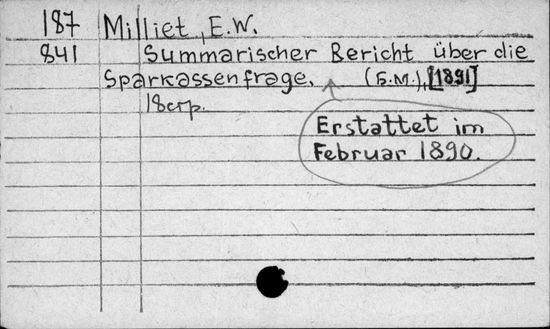 187 Milliet, E.W.
841 Summarischer Bericht über die
Sparkassenfrage. (S.M.), [1891]
18 стр.
Erstattet im
Februar 1890.